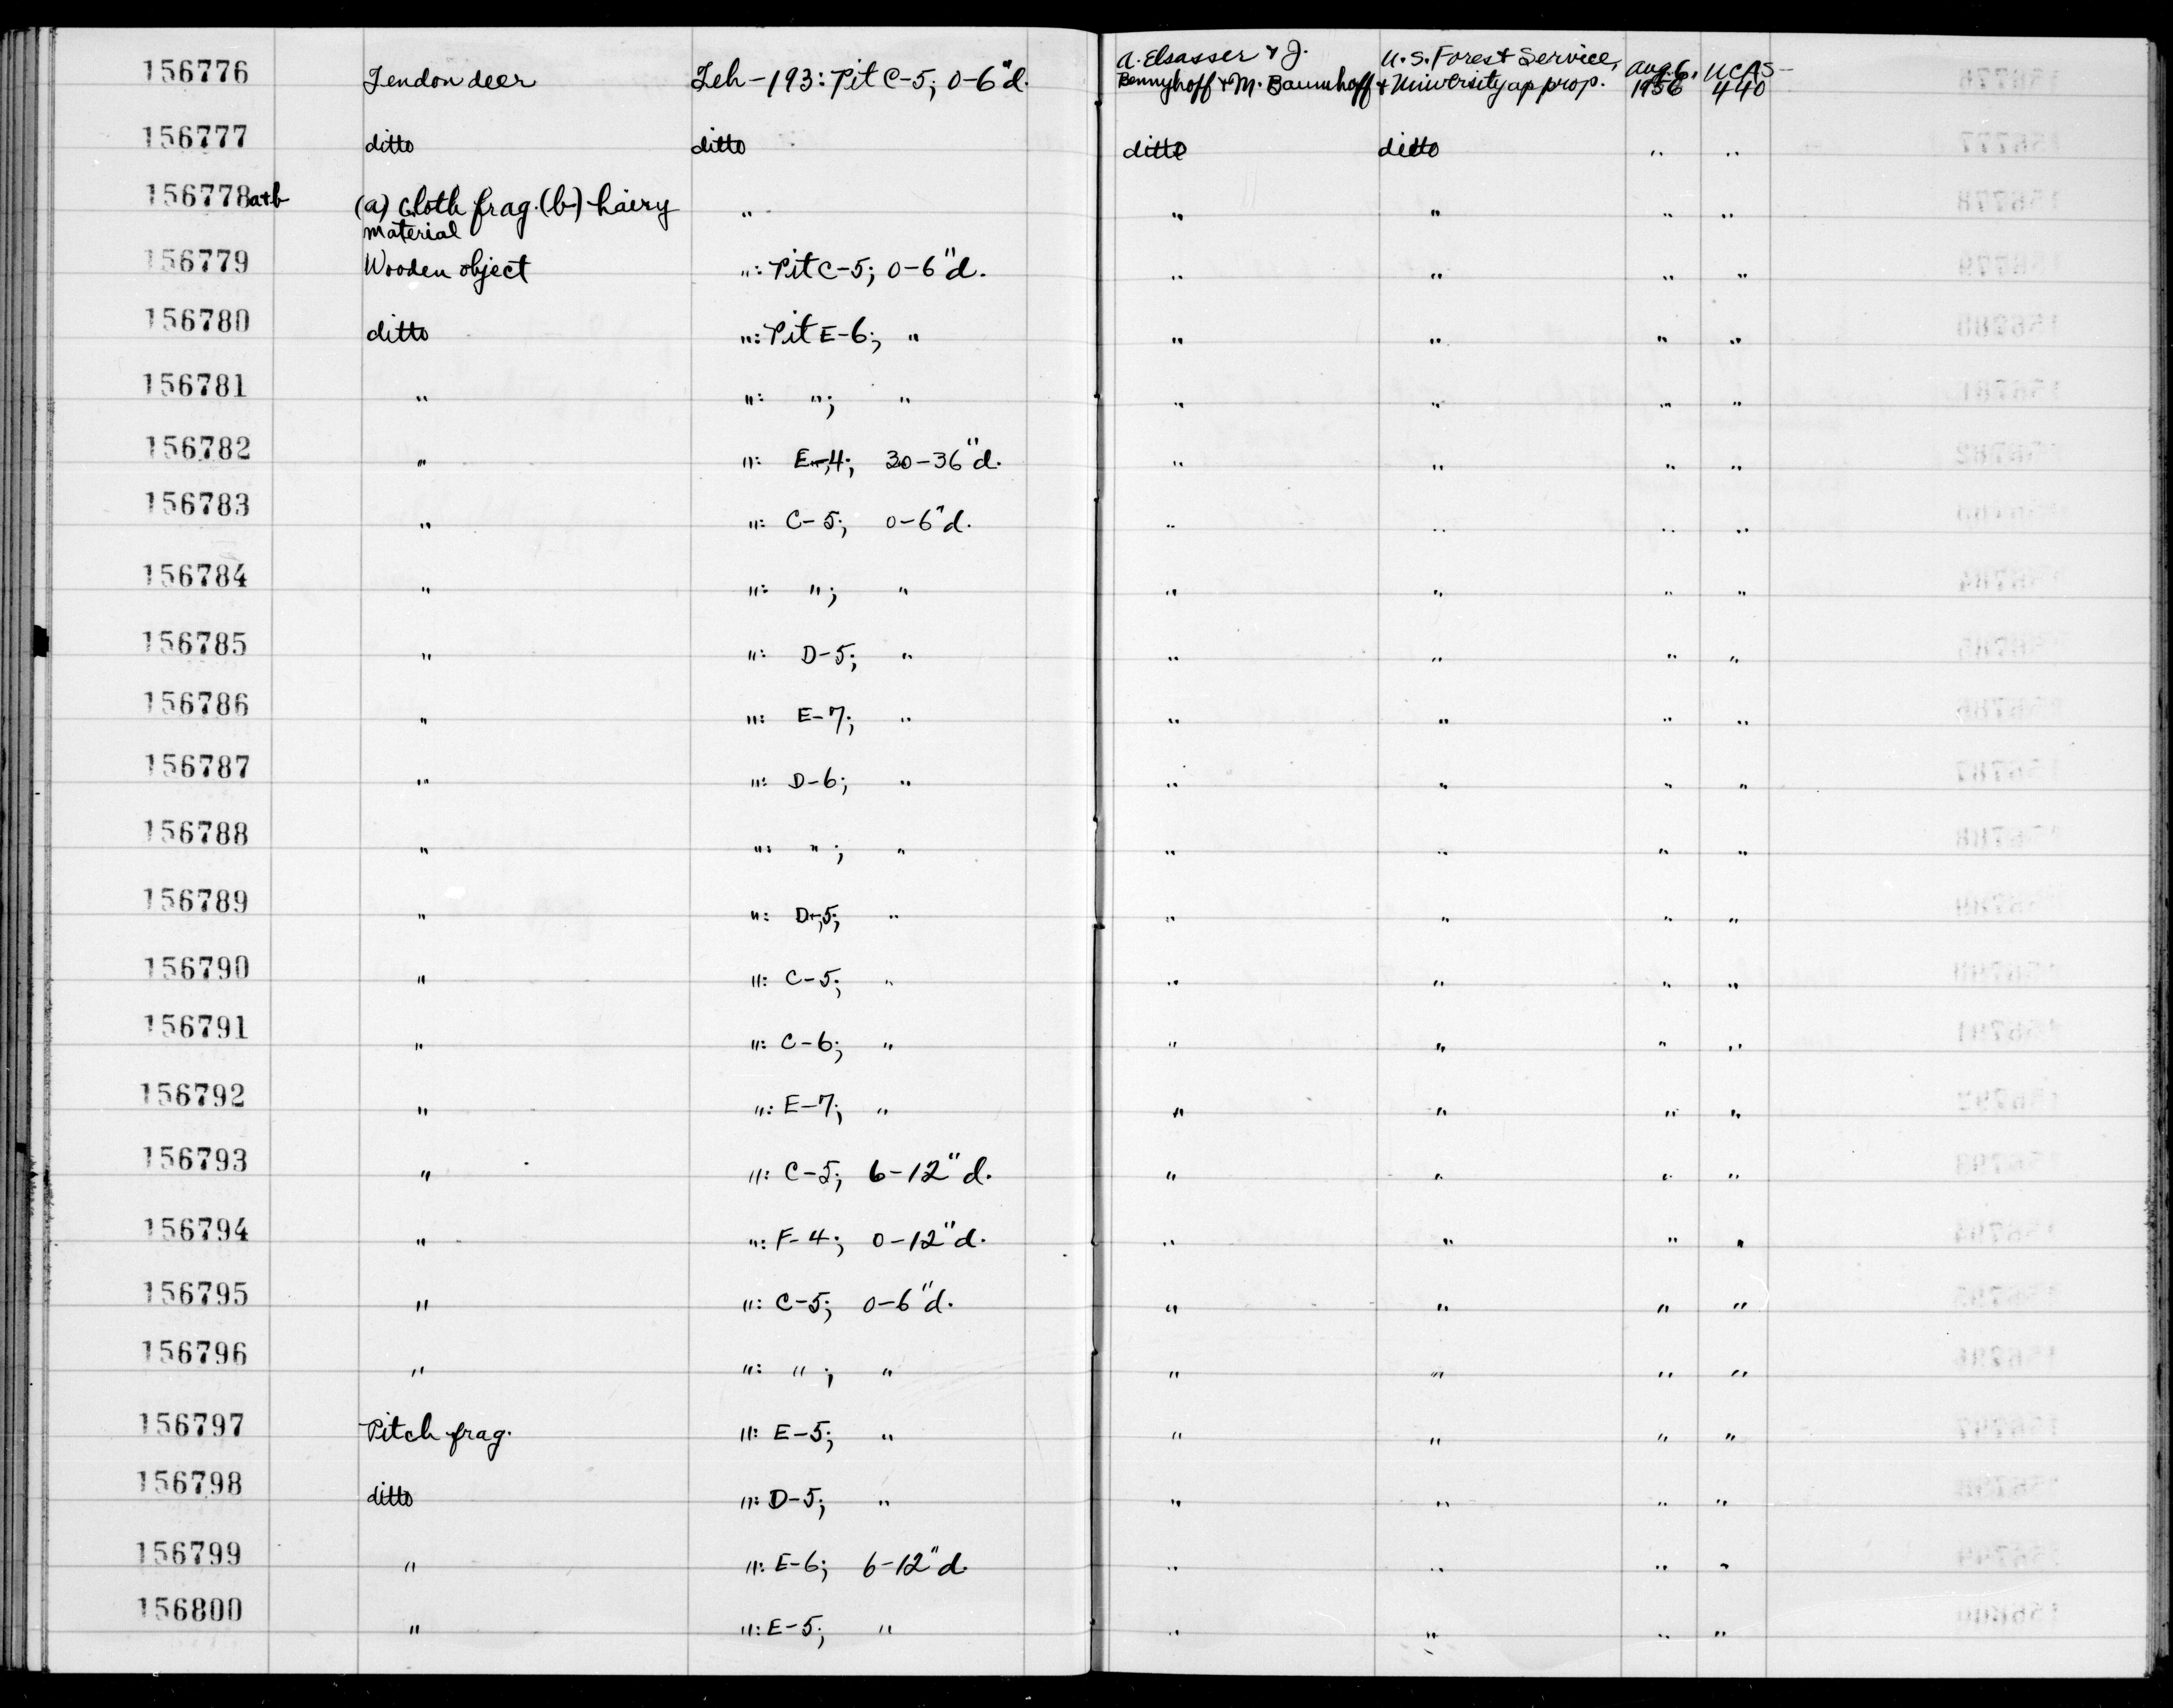 156776 Tendon deer Teh-193: Pit C-5; 0-6"d. A. Elsasser & J. Bennyhoff & M. Baumhoff U.S. Forest Service, & University approp. Aug. 6, 1956 UCAS-440
156777 ditto ditto ditto ditto " "
156778a+b (a) Cloth frag. (b) hairy material " " " " "
156779 Wooden object ": Pit C-5; 0-6"d. " " " "
156780 ditto ": Pit E-6; " " " " "
156781 " ": "; " " " " "
156782 " ": E-4; 30-36"d. " " " "
156783 " ": C-5; 0-6"d. " " " "
156784 " ": "; " " " " "
156785 " ": D-5; " " " " "
156786 " ": E-7; " " " " "
156787 " ": D-6; " " " " "
156788 " ": "; " " " " "
156789 " ": D-5; " " " " "
156790 " ": C-5; " " " " "
156791 " ": C-6; " " " " "
156792 " ": E-7; " " " " "
156793 " ": C-5; 6-12"d. " " " "
156794 " ": F-4; 0-12"d. " " " "
156795 " ": C-5; 0-6"d. " " " "
156796 " ": "; " " " " "
156797 Pitch frag. ": E-5; " " " " "
156798 ditto ": D-5; " " " " "
156799 " ": E-6; 6-12"d. " " " "
156800 " ": E-5; " " " " "